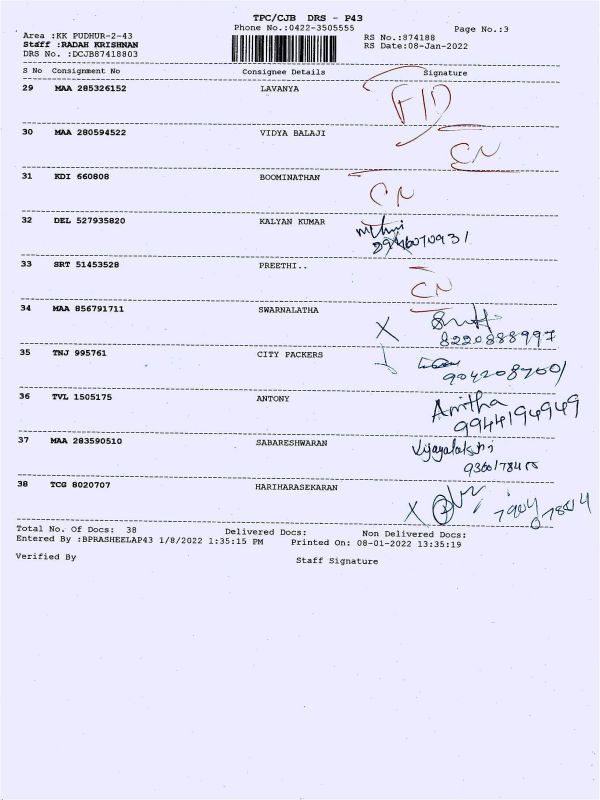 TPC/CJB DRS - P43
Phone No.:0422-3505555 Page No.:3
Area :KK PUDHUR-2-43 RS No.:874188
Staff :RADAH KRISHNAN RS Date:08-Jan-2022
DRS No. :DCJB87418803
S No Consignment No Consignee Details Signature
29 MAA 285326152 LAVANYA F/D
30 MAA 280594522 VIDYA BALAJI CN
31 KDI 660808 BOOMINATHAN CN
32 DEL 527935820 KALYAN KUMAR
33 SRT 51453528 PREETHI.. CN
34 MAA 856791711 SWARNALATHA X
8220888997
35 TNJ 995761 CITY PACKERS
36 TVL 1505175 ANTONY Amitha
9944194949
37 MAA 283590510 SABARESHWARAN Vijayalakshi
38 TCG 8020707 HARIHARASEKARAN X
Total No. Of Docs: 38 Delivered Docs: Non Delivered Docs:
Entered By :BPRASHEELAP43 1/8/2022 1:35:15 PM Printed On: 08-01-2022 13:35:19
Verified By Staff Signature